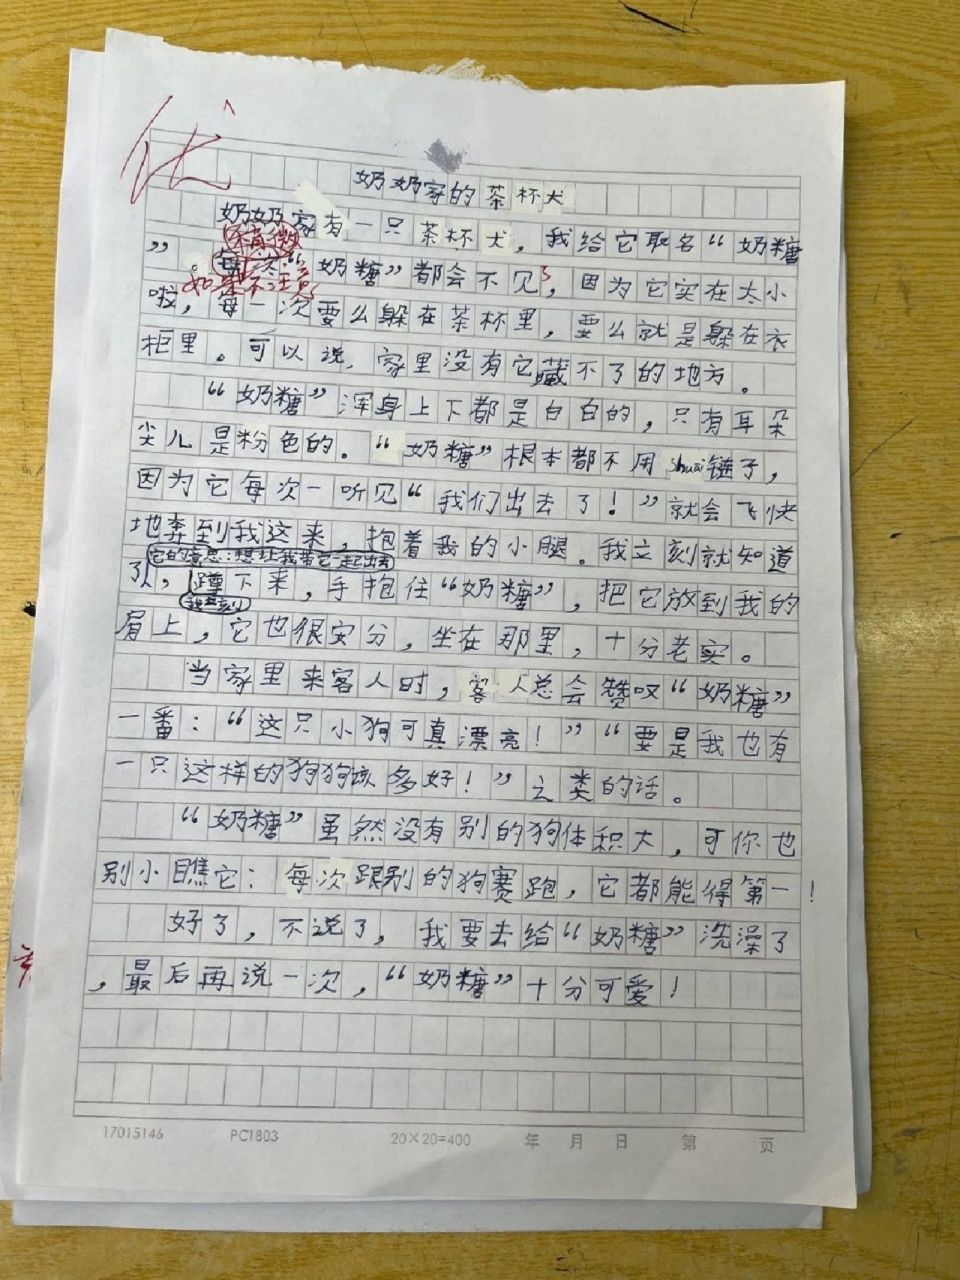 优
奶奶家的茶杯犬
奶奶家有一只茶杯犬，我给它取名“奶糖
稍微
”。每次“奶糖”都会不见，因为它实在太小
如果不注意
啦，每一次要么躲在茶杯里，要么就是躲在衣
柜里。可以说，家里没有它藏不了的地方。
“奶糖”浑身上下都是白白的，只有耳朵
尖儿是粉色的。“奶糖”根本都不用shuai链子，
因为它每次一听见“我们出去了！”就会飞快
地奔到我这来，抱着我的小腿。我立刻就知道
它的意思：想让我带它一起出去
了，蹲下来，手抱住“奶糖”，把它放到我的
我立刻
肩上，它也很安分，坐在那里，十分老实。
当家里来客人时，客人总会赞叹“奶糖”
一番：“这只小狗可真漂亮！”“要是我也有
一只这样的狗狗该多好！”之类的话。
“奶糖”虽然没有别的狗体积大，可你也
别小瞧它：每次跟别的狗赛跑，它都能得第一！
好了，不说了，我要去给“奶糖”洗澡了
，最后再说一次，“奶糖”十分可爱！
17015146 PC1803 20×20=400 年 月 日 第 页